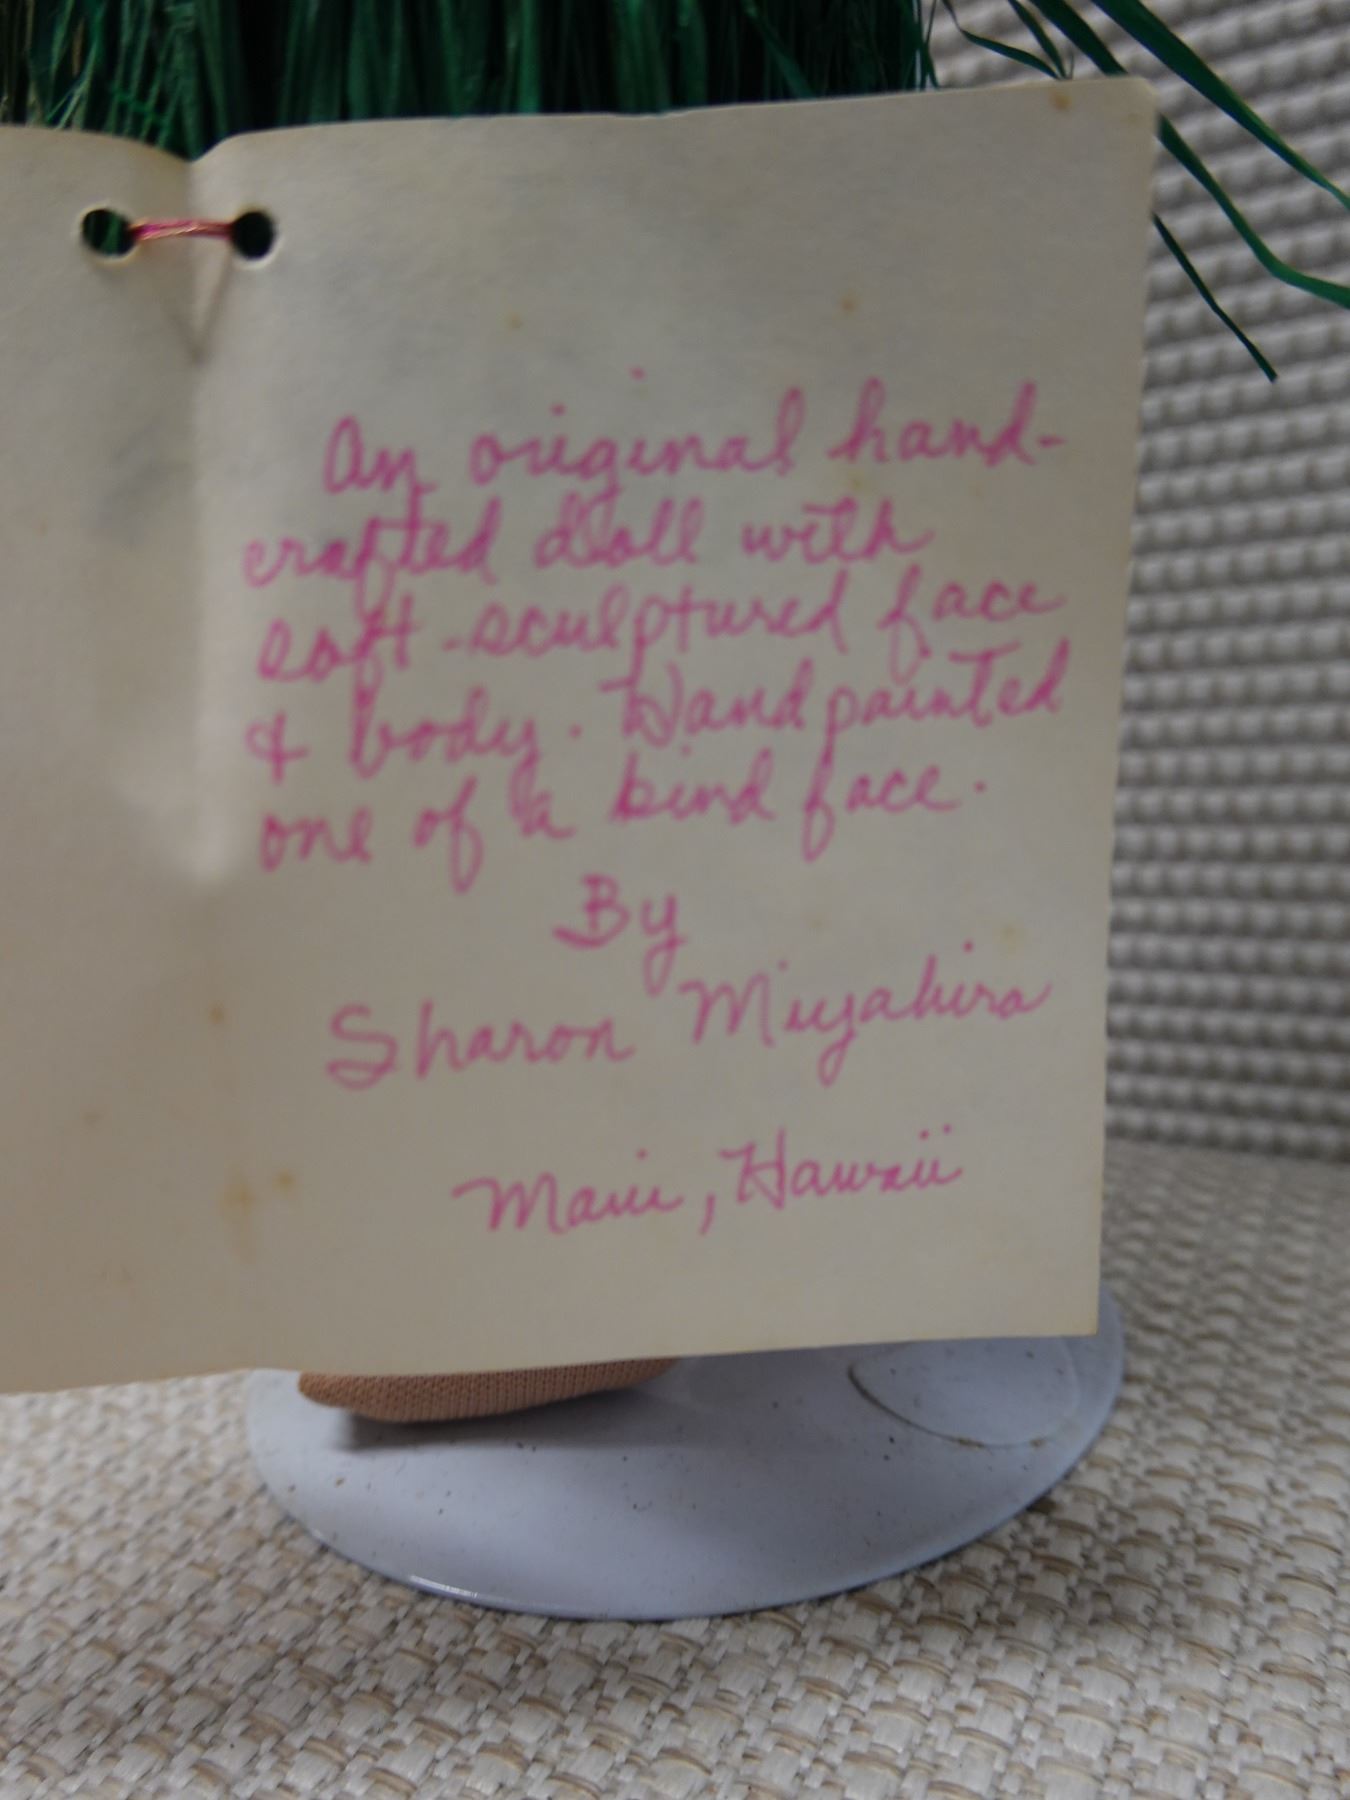 An original hand-
crafted doll with
soft-sculptured face
& body. Handpainted
one of a kind face.
By
Sharon Miyahira
Maui, Hawaii